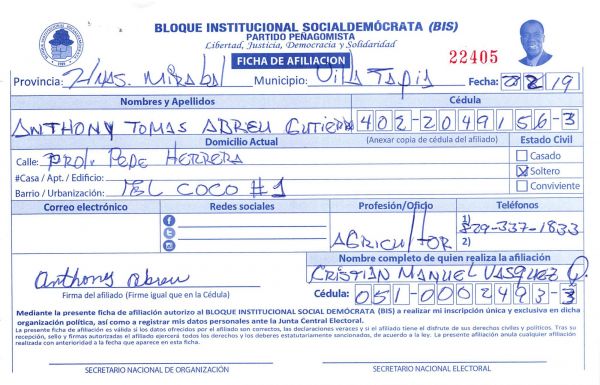 BLOQUE INSTITUCIONAL SOCIALDEMÓCRATA (BIS)
PARTIDO PEÑAGOMISTA
Libertad, Justicia, Democracia y Solidaridad
FICHA DE AFILIACIÓN
22405
Provincia: Hnas. Mirabal Municipio: Villa Tapia Fecha: 2 19
Nombres y Apellidos Cédula
ANTHONY TOMAS ABREU GUTIERRE 402-2049156-3
Domicilio Actual (Anexar copia de cédula del afiliado) Estado Civil
Calle: PROL. PEPE HERRERA
Casado
#Casa / Apt. / Edificio: Soltero
Barrio / Urbanización: EL COCO #1 Conviviente
Correo electrónico Redes sociales Profesión/Oficio Teléfonos
AGRICULTOR
1) 829-337-1833
2)
Nombre completo de quien realiza la afiliación
CRISTIAN MANUEL VASQUEZ
Anthony Abreu
Firma del afiliado (Firme igual que en la Cédula) Cédula: 051-0002493-3
Mediante la presente ficha de afiliación autorizo al BLOQUE INSTITUCIONAL SOCIAL DEMÓCRATA (BIS) a realizar mi inscripción única y exclusiva en dicha
organización política, así como a registrar mis datos personales ante la Junta Central Electoral.
La presente ficha de afiliación es válida si los datos ofrecidos por el afiliado son correctos, las declaraciones veraces y si el afiliado tiene el disfrute de sus derechos civiles y políticos. Tras su
recepción, sello y firmas autorizadas el afiliado ejercerá todos los derechos y los deberes estatutariamente sancionados, de acuerdo a la ley. La presente afiliación anula cualquier afiliación
realizada con anterioridad a la fecha que aparece en esta ficha.
SECRETARIO NACIONAL DE ORGANIZACIÓN SECRETARIO NACIONAL ELECTORAL